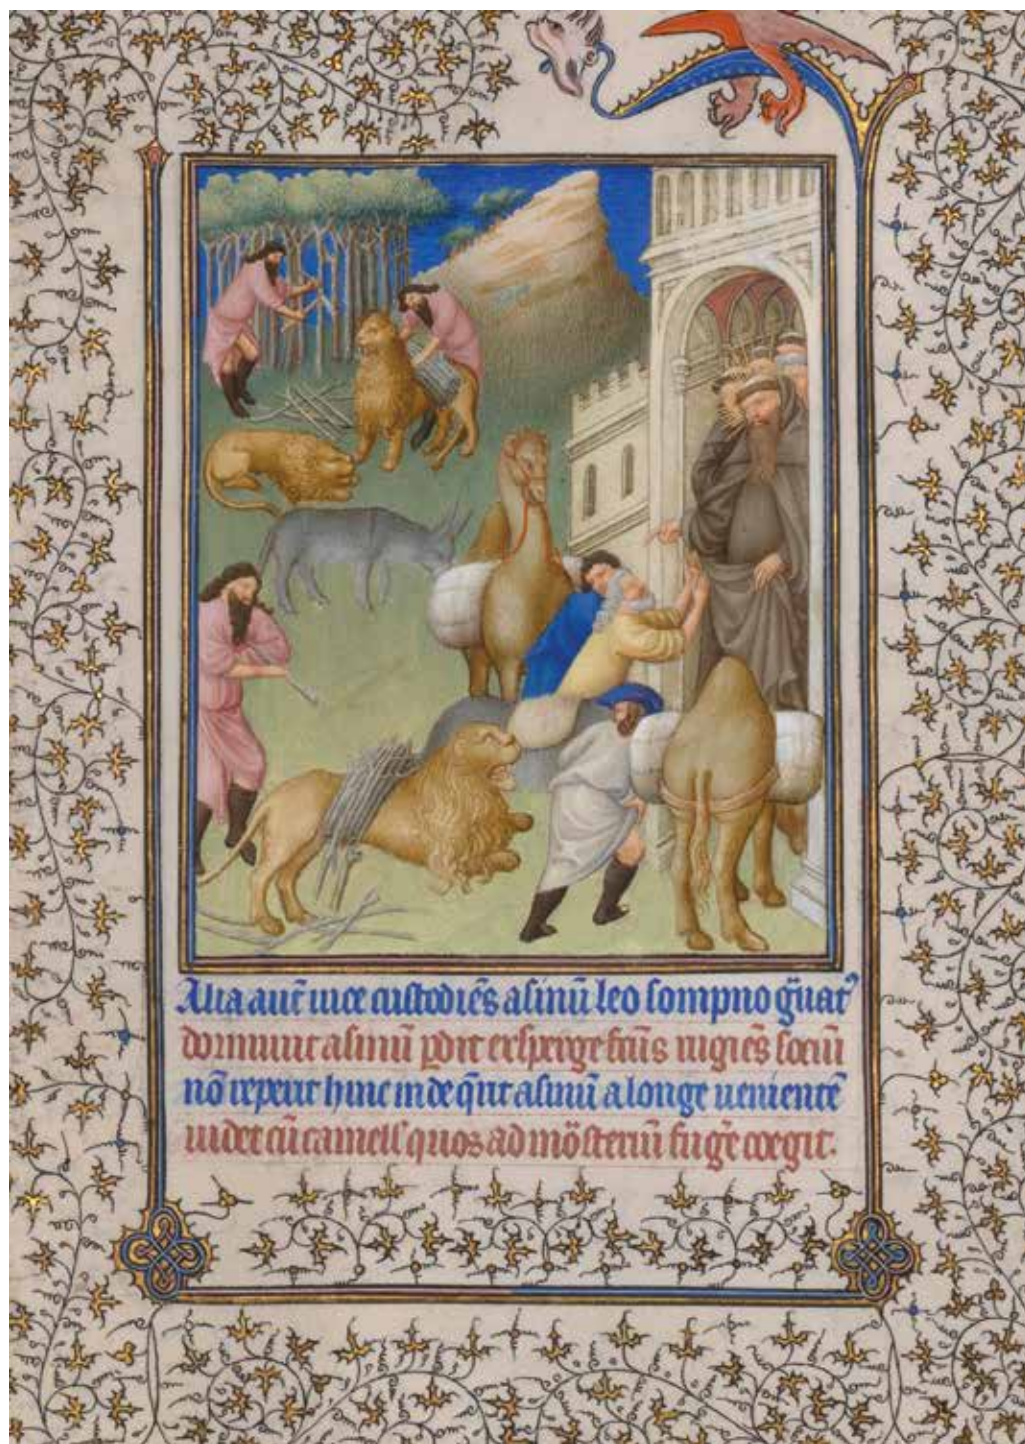 Alia aut̄ vice custodiēs asinū leo sompno g̃uat᷒
dormiuit asinū ꝑdit expergefcūs rugiēs sociū
nō repeit hinc inde q̄rit asinū a longe uenientē
uidet cū camell' quos ad mōsteriū fug̃e coegit.